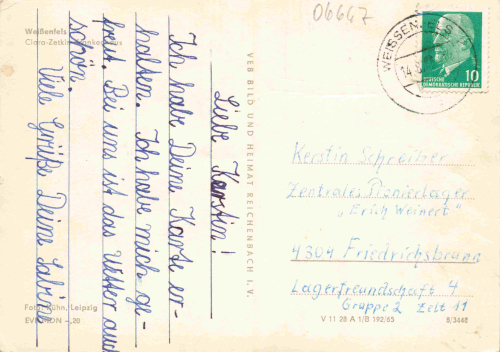 06647
Weißenfels
Clara-Zetkin-
Liebe Karstin!
Ich habe Deine Karte er-
halten. Ich habe mich ge-
freut. Bei uns ist das Wetter auch
schön.
Viele Grüße Deine Sabine
Foto: Kühn, Leipzig
EVP MDN -,20
VEB BILD UND HEIMAT REICHENBACH I. V.
WEISSENFELS
14.8.
DEUTSCHE
DEMOKRATISCHE REPUBLIK
10
Kerstin Schreiber
Zentrales Pionierlager
"Erich Weinert"
4304 Friedrichsbrunn
Lagerfreundschaft 4
Gruppe 2 Zelt 11
V 11 28 A 1/B 192/65
8/3448